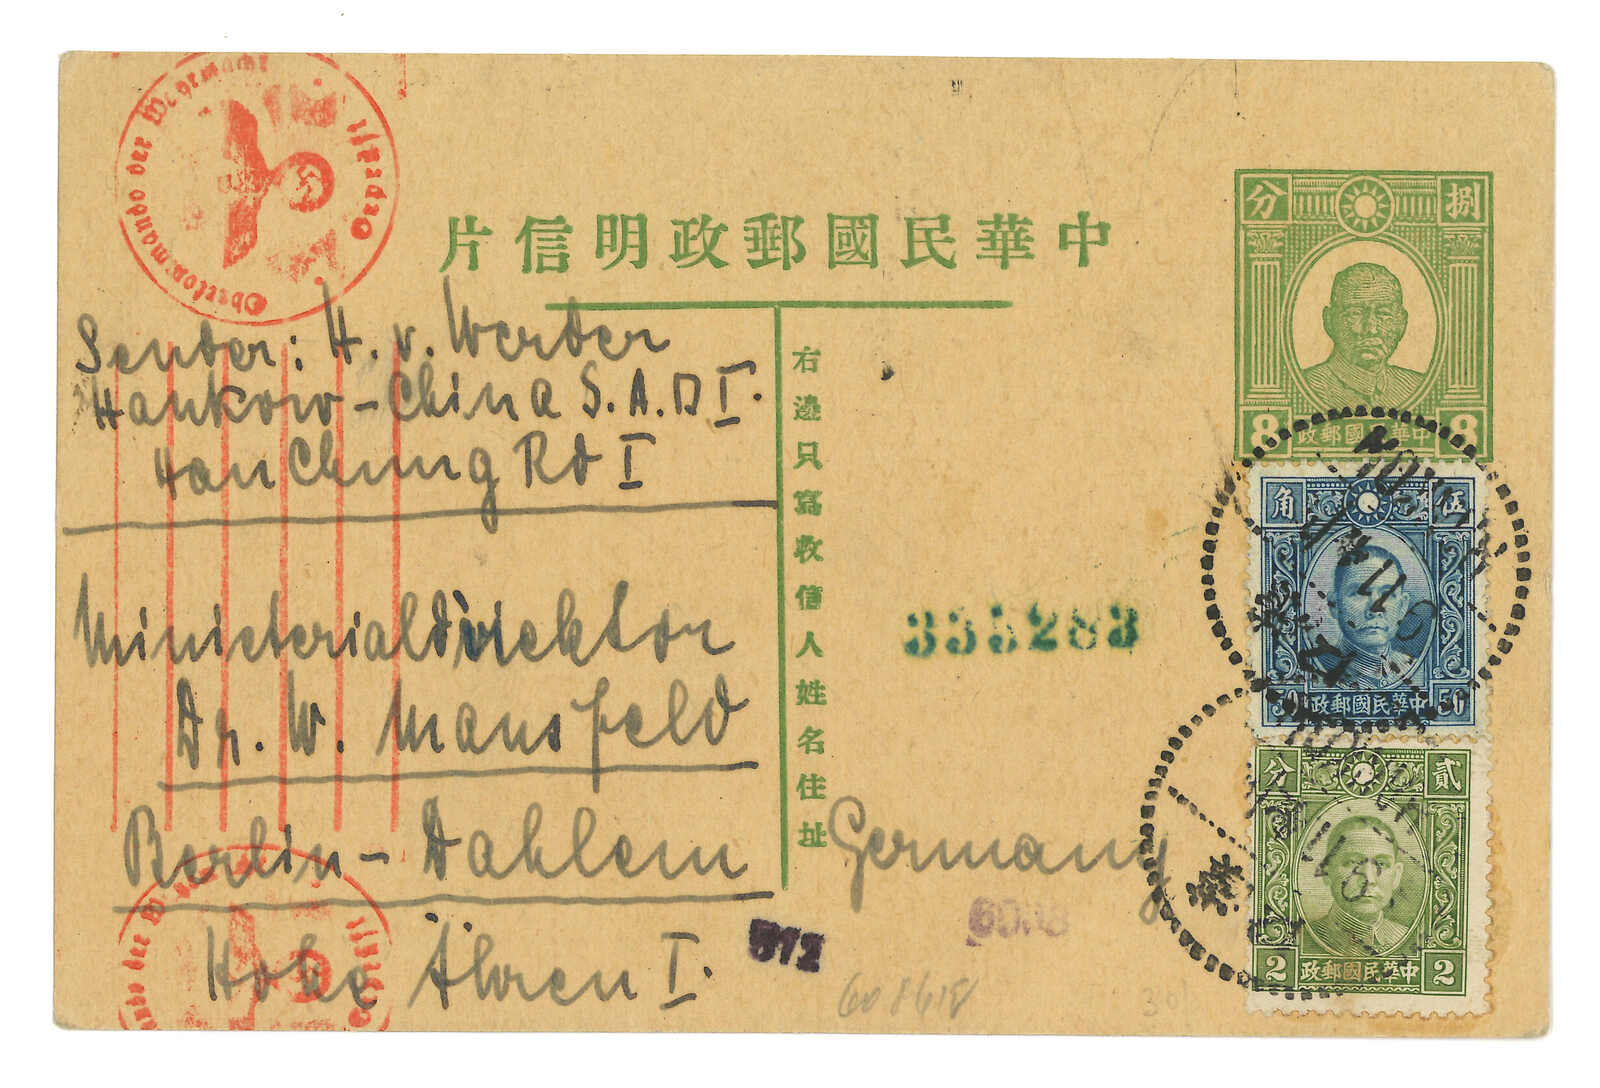 中華民國郵政明信片
Oberkommando der Wehrmacht
Geprüft
捌 分
8 8
中華民國郵政
Sender: H. v. Werder
Hankow - China S.A.D I.
Han Chung Rd I
右邊只寫收信人姓名住址
伍 角
50 50
中華民國郵政
335283
Ministerialdirektor
Dr. W. Mansfeld
Berlin - Dahlem
Germany
Hohe Ähren I.
572
貳 分
2 2
中華民國郵政